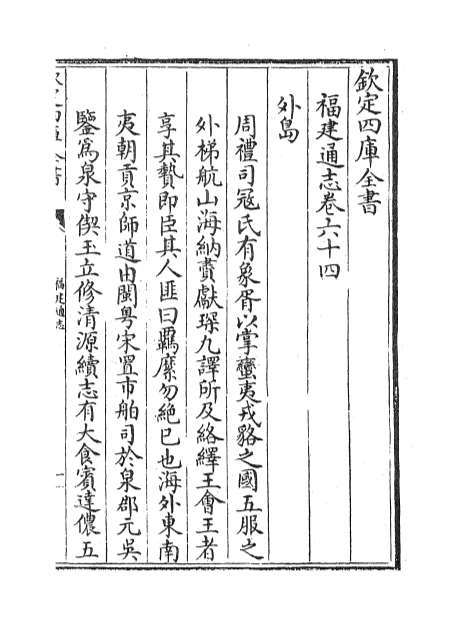 欽定四庫全書
福建通志卷六十四
外島
周禮司冦氏有象胥以掌蠻夷戎貉之國五服之
外梯航山海納賮獻琛九譯所及絡繹王會王者
享其贄即臣其人匪曰羈縻勿絶已也海外東南
夷朝貢京師道由閩粤宋置市舶司於泉郡元吳
鑒爲泉守偰玉立修清源續志有大食賓達儂五
福建通志
一